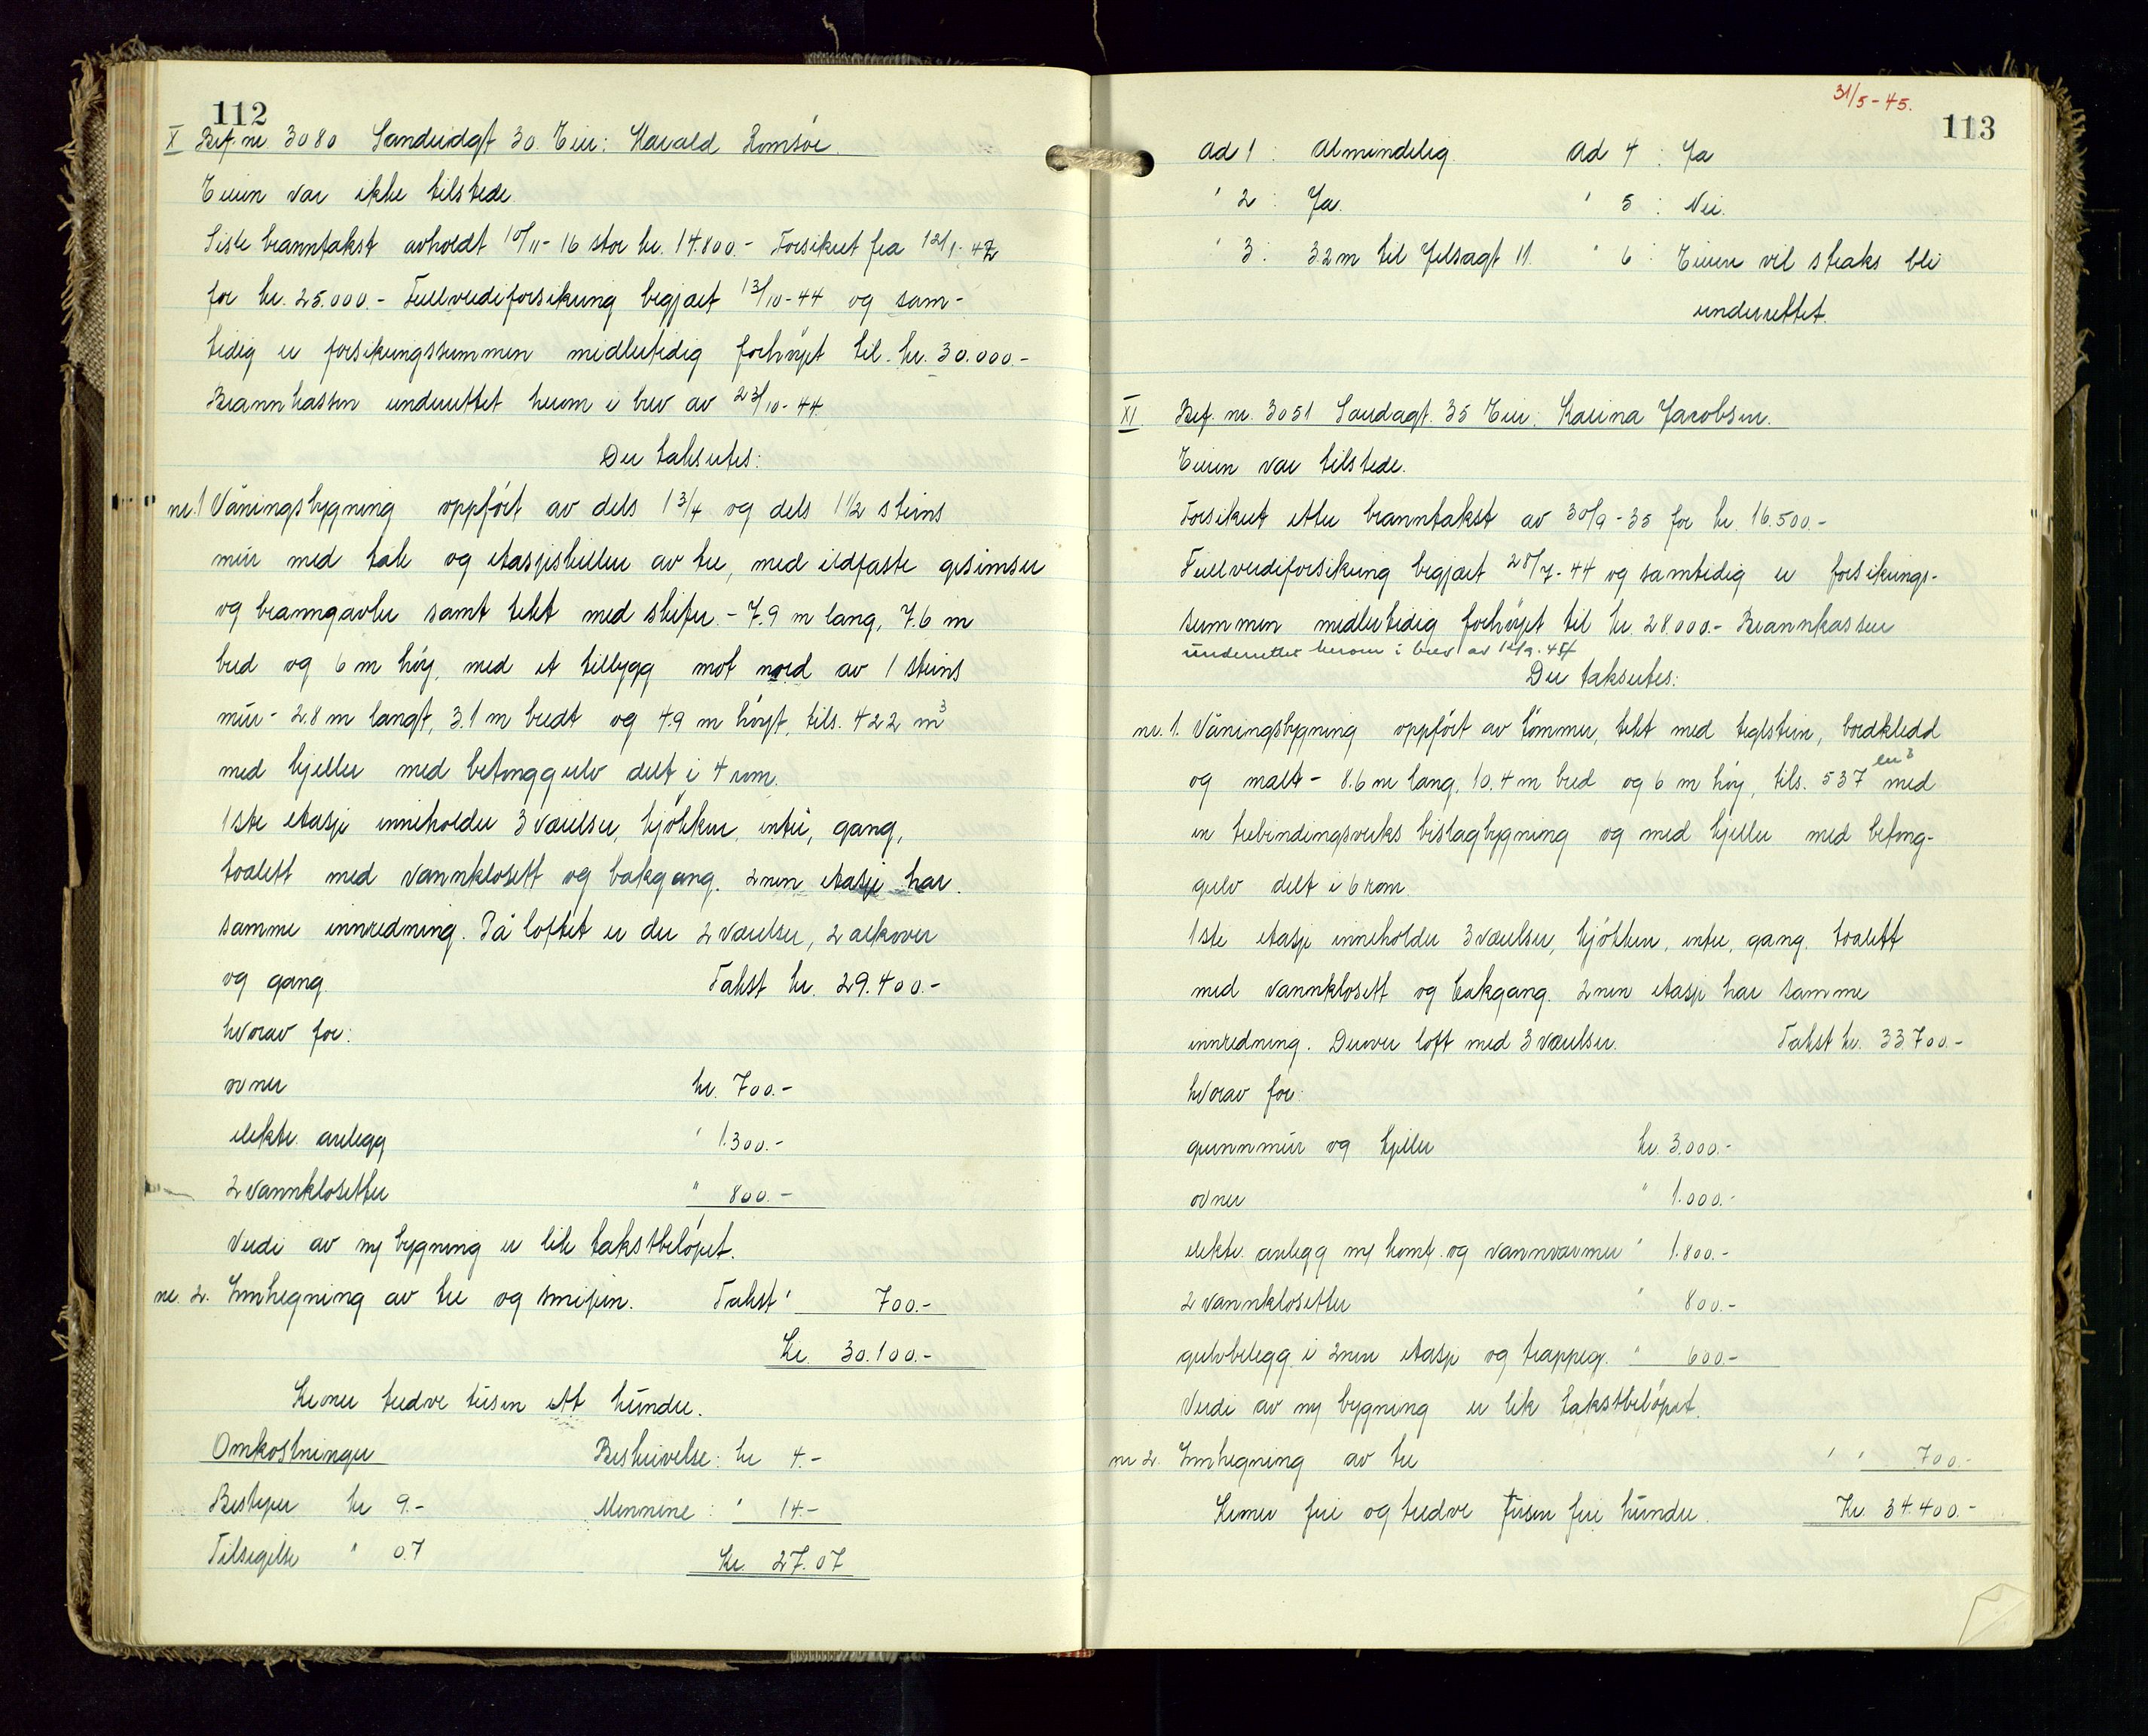 112
X Brf. nr. 3080 Sandeidgt 30. Eier: Harald Romsöe.
Eieren var ikke tilstede
Siste branntakst avholdt 10/11-16 stor kr. 14.800.- Forsikret fra 12/1-42
for kr. 25.000.- Fullverdiforsikring begjært 13/10-44 og sam-
tidig er forsikringssummen midlertidig forhöyet til kr. 30.000.-
Brannkassen underrettet herom i brev av 23/10-44
Der takseres:
nr. 1 Våningsbygning oppfört av dels 1 3/4 og dels 1 1/2 steins
mur med tak og etasjeskiller av tre, med ildfaste gesimser
og branngavler samt tekt med skifer. - 7.9 m lang, 7.6 m
bred og 6 m höy, med et tilbygg mot nord av 1 steins
mur - 2.8 m langt, 3.1 m bredt og 4.9 m höyt, tils. 422 m3
med kjeller med betonggulv delt i 4 rom.
1ste etasje inneholder 3 værelser, kjökken, entré, gang,
toalett med vannklosett og bakgang. 2nen etasje har
samme innredning. På loftet er der 2 værelser, 2 alkover
og gang. Takst kr. 29.400.-
hvorav for:
ovner kr. 700.-
elektr. anlegg " 1.300.-
2 vannklosetter " 800.-
Verdi av ny bygning er lik takstbelöpet.
nr. 2. Innhegning av tre og smijern. Takst " 700.-
Kr. 30.100.-
Kroner tredve tusen ett hundre.
Omkostninger Beskrivelse: kr 4.-
Bestyrer kr 9.- Mennene: " 14.-
Tilsigelse " 0.7 Kr. 27.07
31/5-45.
113
Ad 1 : Almindelig. Ad 4 : Ja
" 2 : Ja. " 5 : Nei.
" 3 : 3.2 m til Jelsagt 11. " 6 : Eieren vil straks bli
underrettet.
XI. Brf. nr. 3051 Saudagt. 35 Eier: Karina Jacobsen.
Eieren var tilstede.
Forsikret etter branntakst av 30/9-35 for kr. 16.500.-
Fullverdiforsikring begjært 28/7-44 og samtidig er forsikrings-
summen midlertidig forhöyet til kr. 28.000.- Brannkassen
underrettet herom i brev av
Der takseres:
nr. 1. Våningsbygning oppfört av tömmer, tekt med teglstein, bordkledd
og malt - 8.6 m lang, 10.4 m bred og 6 m höy, tils. 537 m3 med
en trebindingsverks bislagbygning og med kjeller med betong-
gulv delt i 6 rom.
1ste etasje inneholder 3 værelser, kjökken, entre, gang, toalett
med vannklosett og bakgang. 2nen etasje har samme
innredning. Derover loft med 3 værelser. Takst kr. 33.700.-
hvorav for:
grunnmur og kjeller kr. 3.000.-
ovner " 1.000.-
elektr. anlegg m/ komf. og vannvarmer " 1.800.-
2 vannklosetter " 800.-
gulvbelegg i 2nen etasje og trappeg. " 600.-
Verdi av ny bygning er lik takstbelöpet.
nr 2. Innhegning av tre " " 700.-
Kroner fire og tredve tusen fire hundre. Kr. 34.400.-